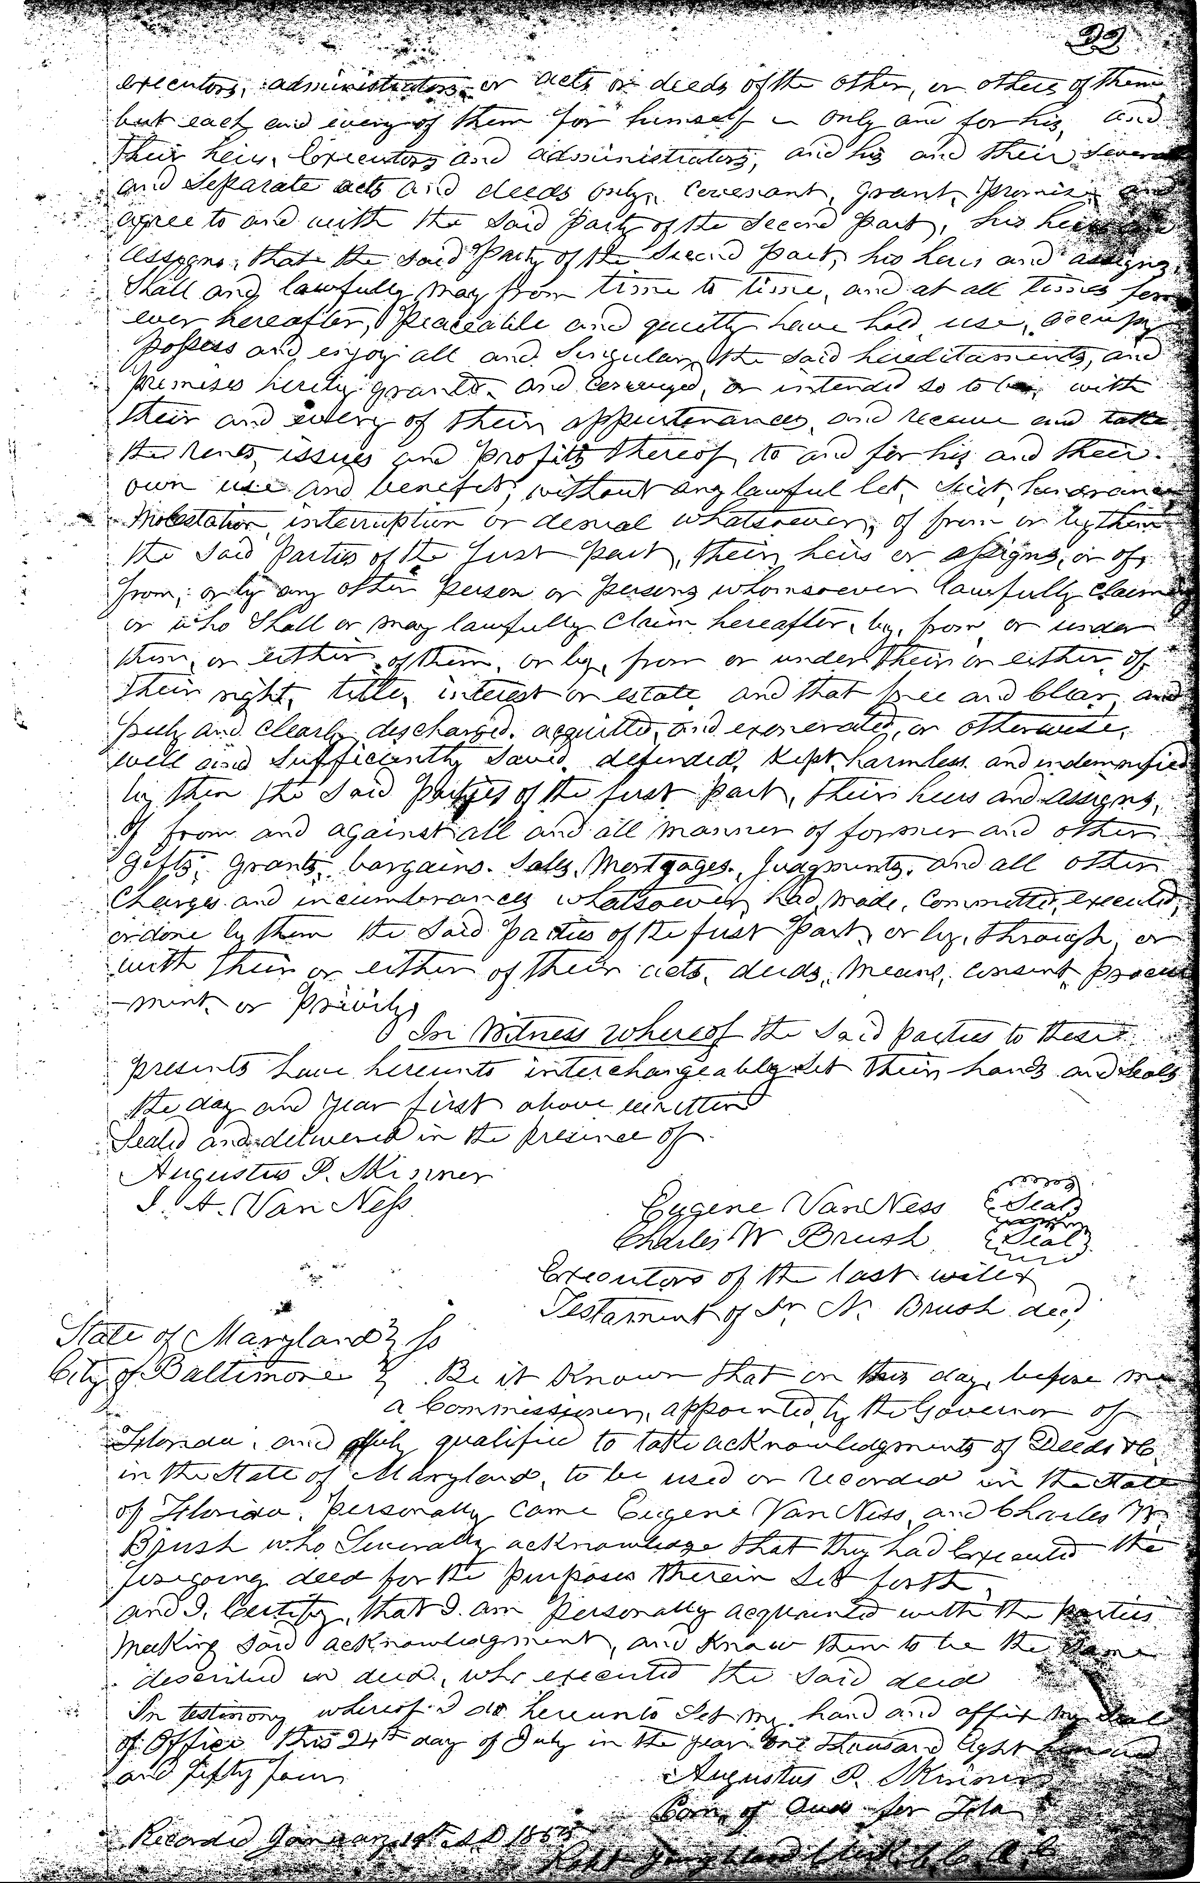 executors, administrators or acts or deeds of the other, or others of them
but each and every of them for himself only and for his, and
their heirs, Executors and administrators, and his and their several
and separate acts and deeds only, covenant, grant, promise and
agree to and with the said Party of the Second Part, his heirs and
assigns, that the said Party of the Second Part, his heirs and assigns,
Shall and lawfully may from time to time, and at all times for
ever hereafter, peaceable and quietly have hold use, occupy
possess and enjoy all and Singular, the said hereditaments, and
premises hereby grant. and conveyed, or intended so to be, with
their and every of their appurtenances, and receive and take
the rents, issues and Profits thereof, to and for his and their
own use and benefit, without any lawful let, Suit, hindrance
Molestation, interruption or denial whatsoever, of from or by them
the said Parties of the first Part, their heirs or assigns, or of,
from, or by any other Person or Persons whomsoever lawfully claim
or who Shall or may lawfully claim hereafter, by, from, or under
them, or either of them, or by, from or under their or either of
their right, title, interest or estate, and that free and clear, and
freely and clearly discharged, acquitted, and exonerated, or otherwise,
well and Sufficiently Saved, defended, Kept, harmless and indemnified
by them the said Parties of the first Part, their heirs and assigns,
of from and against all and all manner of former and other
Gifts, grants, bargains, Sales, Mortgages, Judgments, and all other
Charges and incumbrances whatsoever, had, made, committed, executed,
or done by them the said Parties of the first Part, or by, through, or
with their or either of their acts, deeds, Means, consent, procure
-ment, or Privity,
In Witness whereof the said parties to these
presents have hereunto interchangeably set their hands and Seals
the day and year first above written
Sealed and delivered in the presence of
Augustus P. Skinner
J. A. Van Ness
Eugene Van Ness {Seal}
Charles W Brush {Seal}
Executors of the last will &
Testament of Dr. N. Brush decd,
State of Maryland } Ss
City of Baltimore } Be it Known that on this day, before me
a Commissioner, appointed, by the Governor of
Florida, and duly qualified to take acknowledgments of Deeds &c.
in the State of Maryland, to be used or recorded in the State
of Florida, personally came Eugene Van Ness, and Charles W.
Brush who Severally acknowledge that they had Executed the
foregoing deed for the purposes therein Set forth,
and I, Certify, that I am personally acquainted with the parties
Making said acknowledgment, and Know them to be the Same
described in deed, who executed the said deed
In testimony whereof I do hereunto Set my hand and affix my Seal
of Office, this 24th day of July in the year One thousand Eight hundred
and fifty four
Augustus P. Skinner
Com, of Deeds for Fla
Recorded January 19th A.D 1855
Clerk C. C.